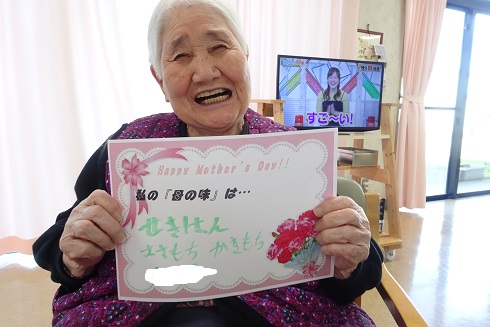 Happy Mother's Day!!
私の『母の味』は…
せきはん
よもぎもち かきもち
すご〜い!